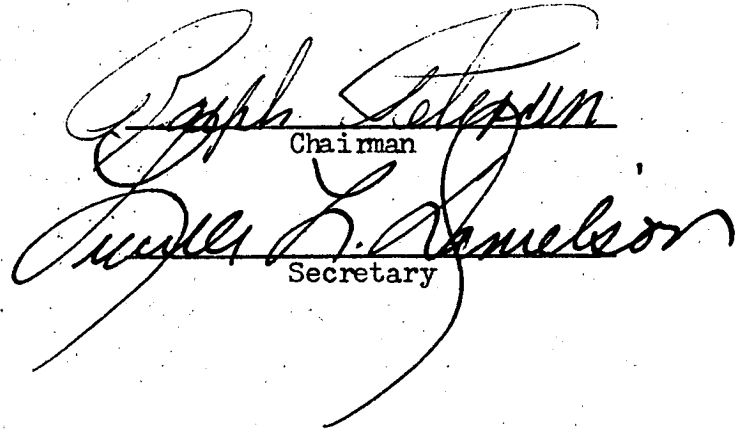 Ralph Peterson
Chairman
Lucille L. Danielson
Secretary